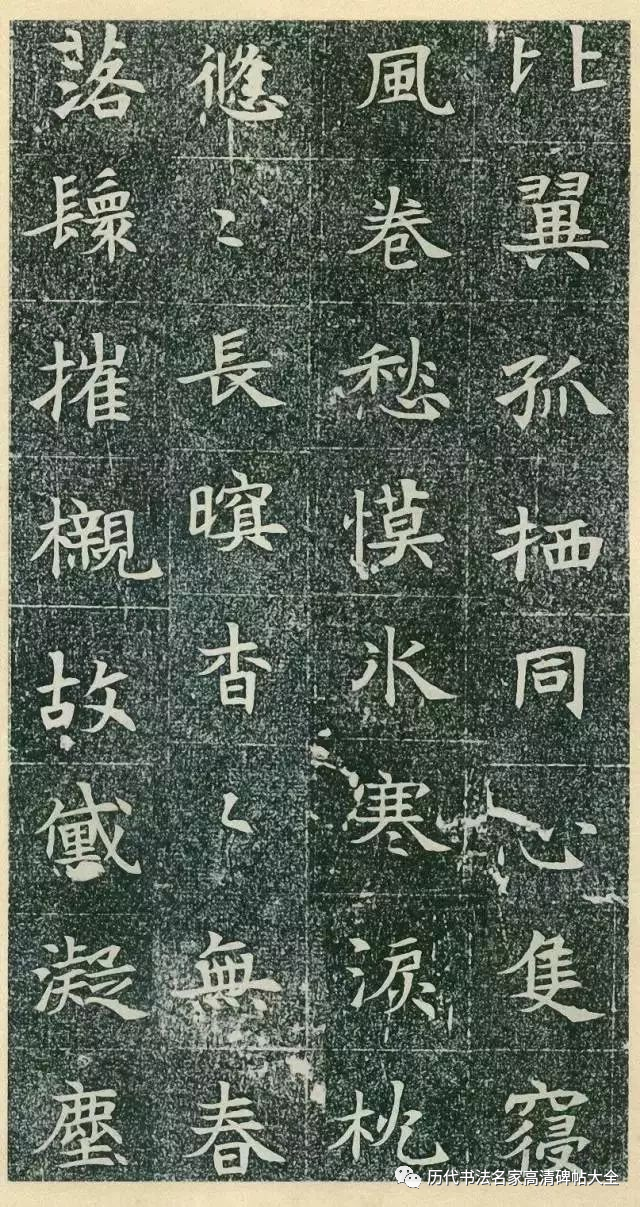 比翼孤栖同心隻寢
風卷愁幙氷寒淚枕
悠〻長暝杳〻無春
落鬟摧櫬故黛凝塵
历代书法名家高清碑帖大全